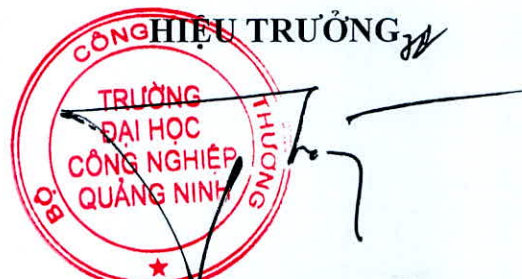 HIỆU TRƯỞNG
BỘ CÔNG THƯƠNG
TRƯỜNG
ĐẠI HỌC
CÔNG NGHIỆP
QUẢNG NINH